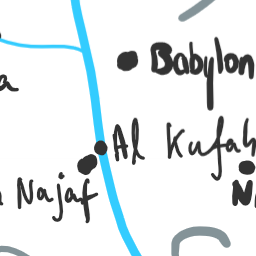 Babylon
a
Al Kufah
Najaf
N